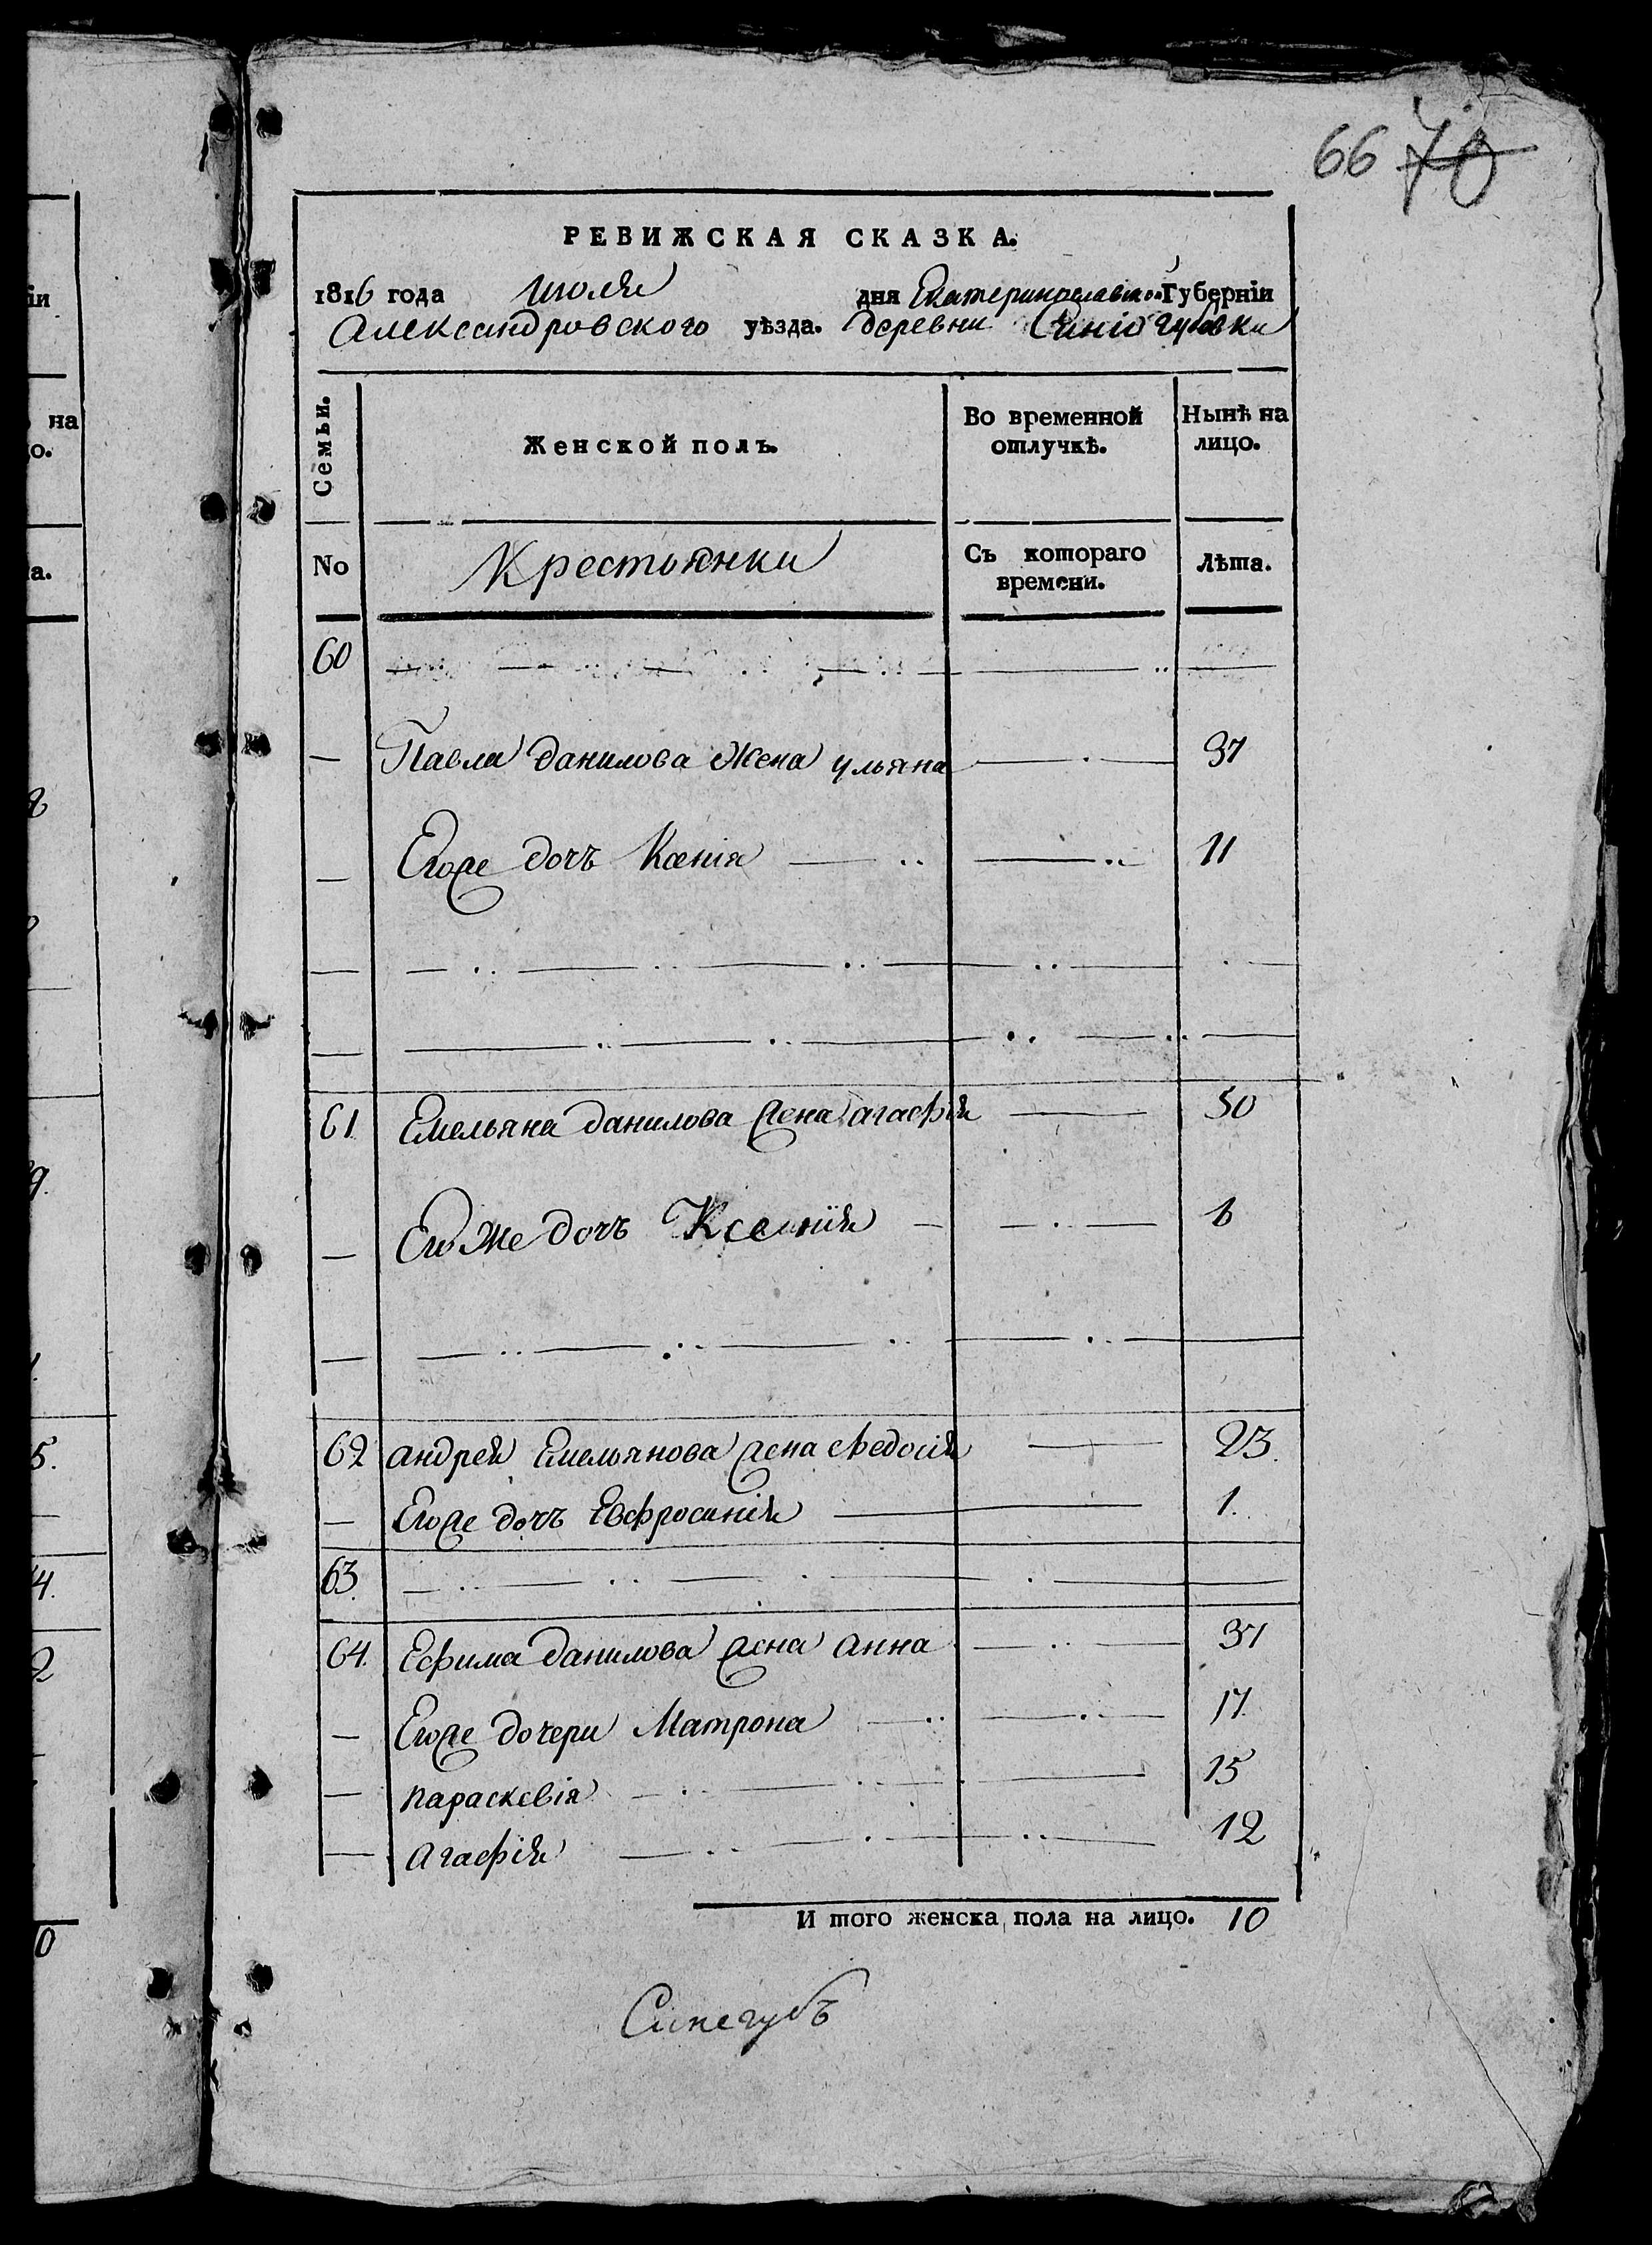 66 70
РЕВИЖСКАЯ СКАЗКА.
1816 года июля дня Екатеринославской Губерніи
Александровского уѣзда. деревни Синегубовки
Семьи. Женской полъ. Во временной отлучкѣ. Нынѣ на лицо.
No Крестьянки Съ котораго времени. Лѣта.
60
Павла Данилова Жена ульяна 37
Егоже дочъ Ксенія 11
61 Емельяна Данилова жена агафія 50
Его же дочъ Ксенія
62 андрея Емельянова жена Федосія 23.
Егоже дочъ Евфросинія 1.
63.
64. Ефима Данилова жена анна 37
Егоже дочери Матрона 17.
параскевія 15
агафія 12
И того женска пола на лицо. 10
Синегубъ
іи
на
о.
а.
5.
4.
2
0